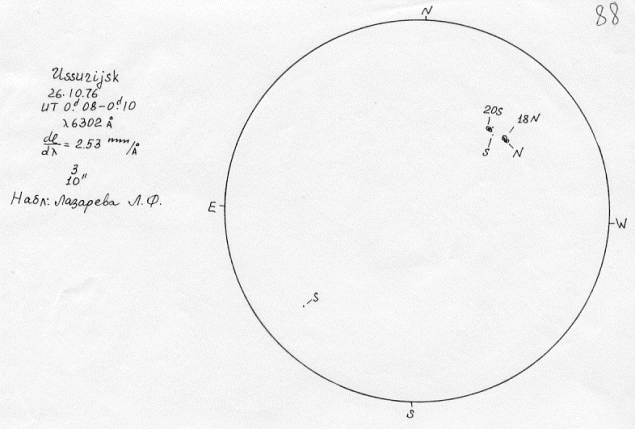 88
N
Ussurijsk
26.10.76
UT 0.ᵈ08-0.ᵈ10
λ6302 Å
dl/dλ = 2.53 mm/Å
3
10"
Набл: Лазарева Л.Ф.
20S
18N
S
N
E
W
S
S